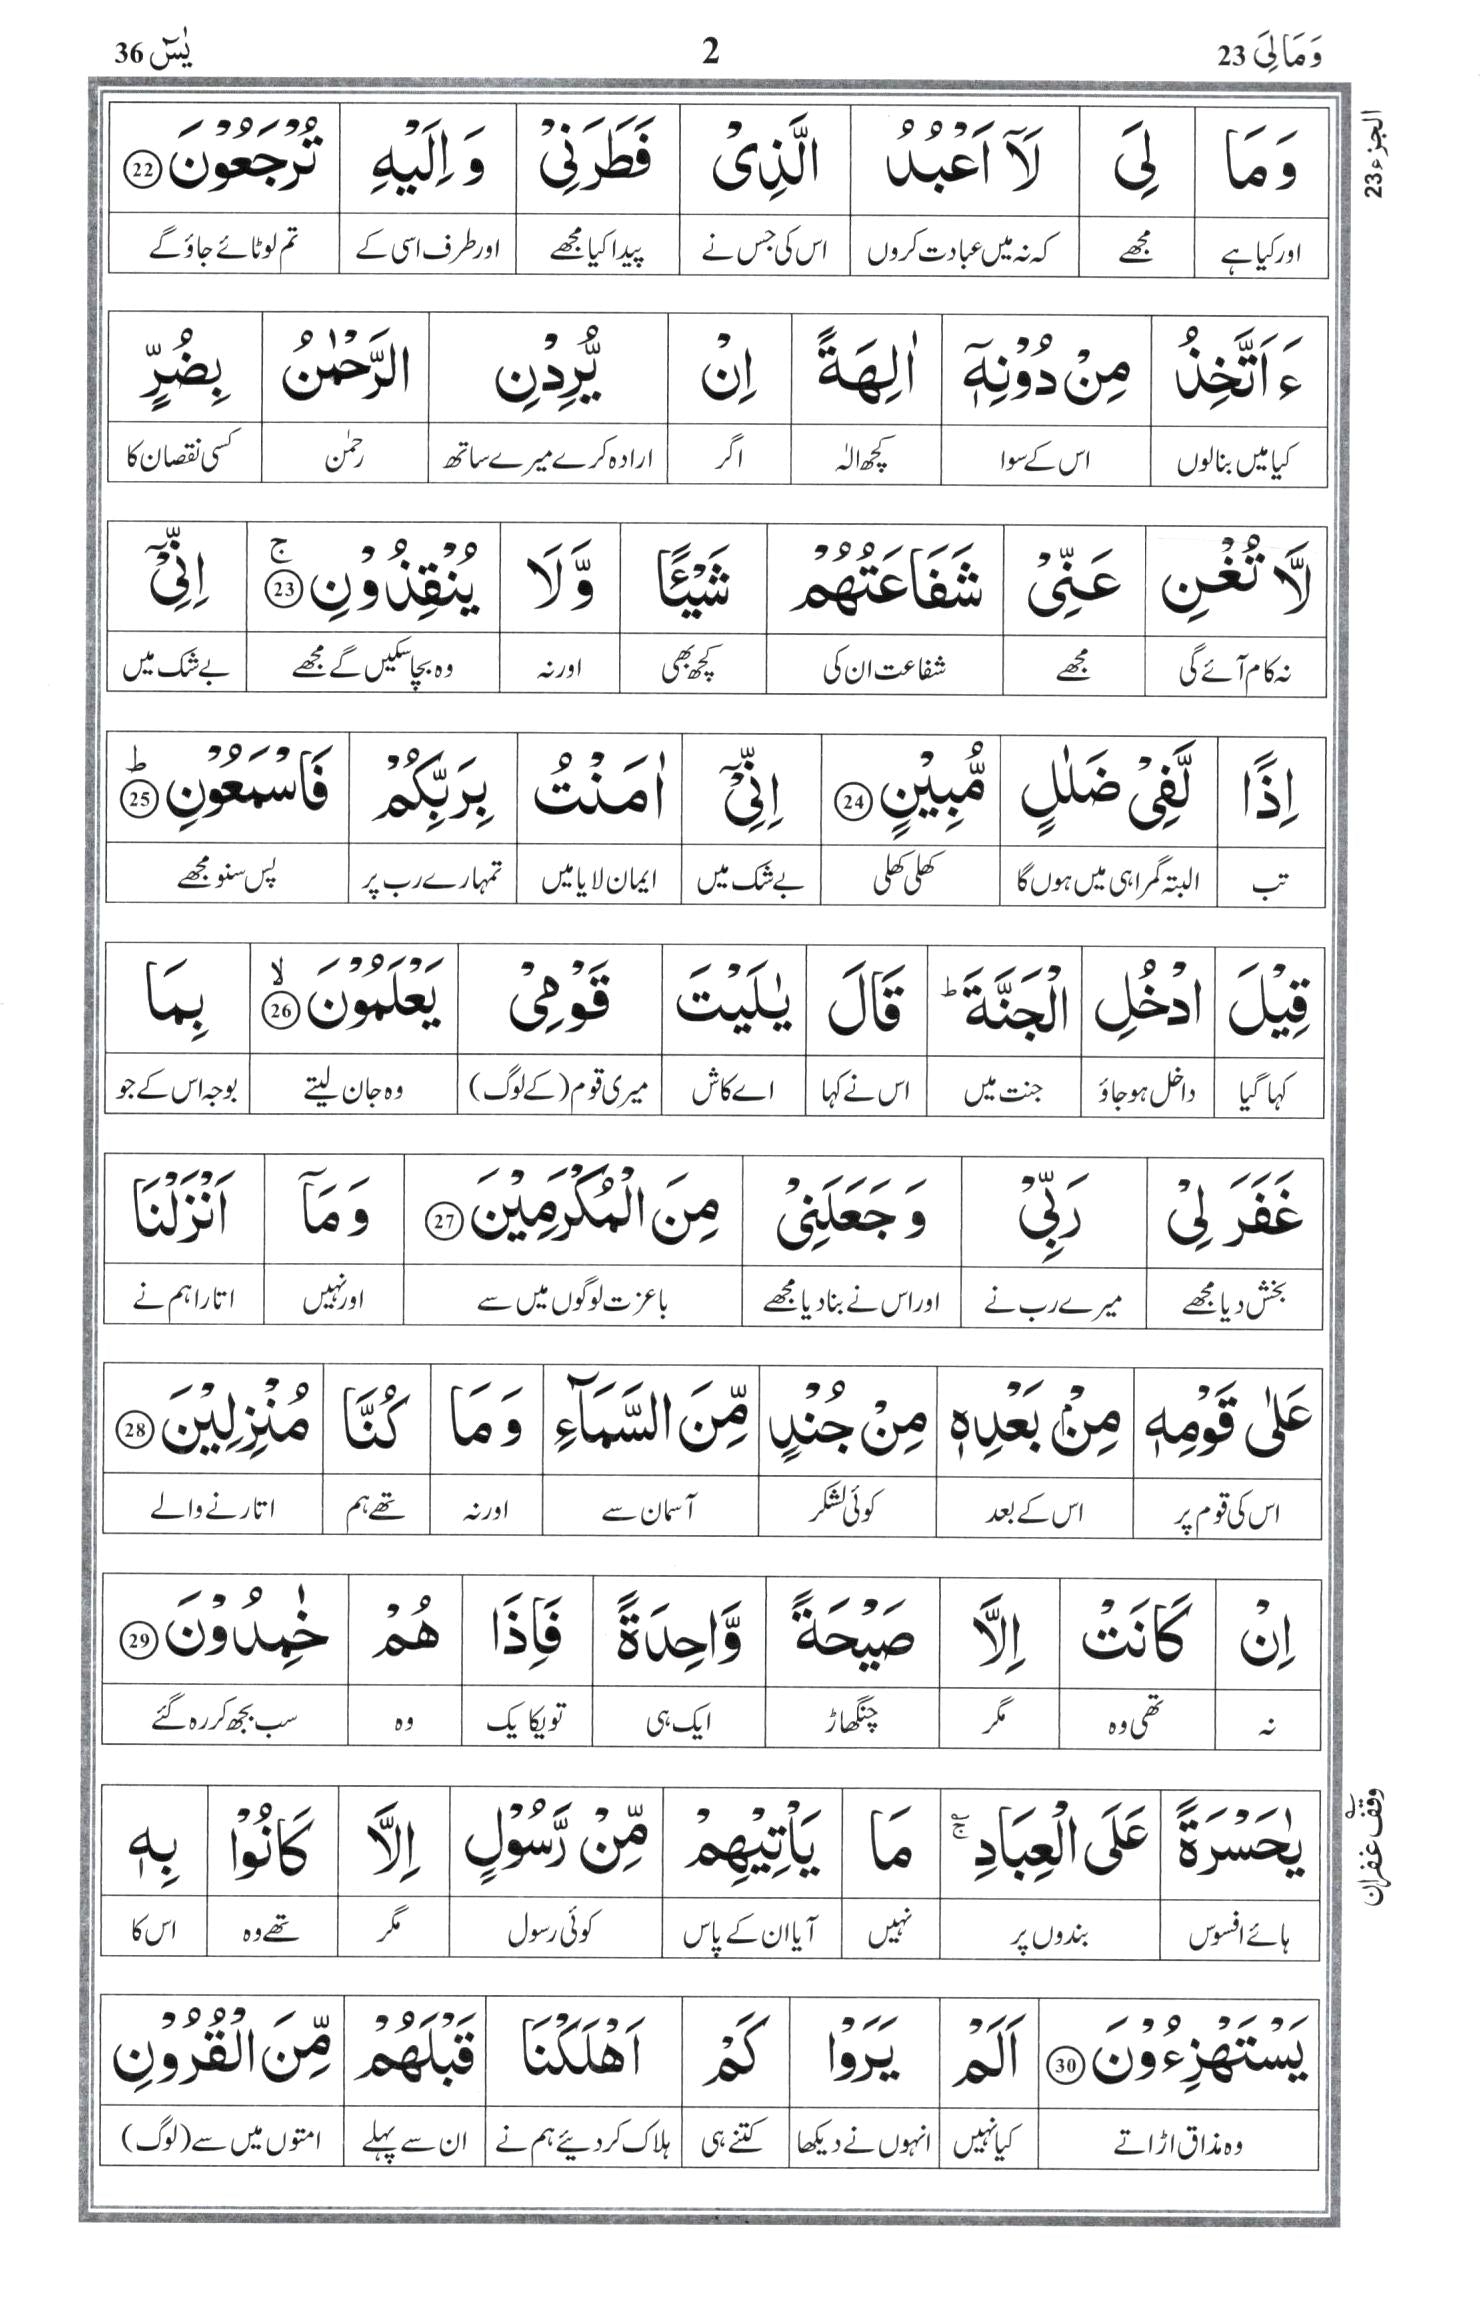 وَمَالِیَ 23
2
یٰسٓ 36
الجزء 23
وَمَا لِیَ لَاۤ اَعْبُدُ الَّذِیْ فَطَرَنِیْ وَاِلَیْهِ تُرْجَعُوْنَ 22
اور کیا ہے مجھے کہ نہ میں عبادت کروں اس کی جس نے پیدا کیا مجھے اور طرف اسی کے تم لوٹائے جاؤ گے
ءَاَتَّخِذُ مِنْ دُوْنِهٖۤ اٰلِهَةً اِنْ یُّرِدْنِ الرَّحْمٰنُ بِضُرٍّ
کیا میں بنالوں اس کے سوا کچھ الٰہ اگر ارادہ کرے میرے ساتھ رحمٰن کسی نقصان کا
لَّا تُغْنِ عَنِّیْ شَفَاعَتُهُمْ شَیْـًٔا وَّلَا یُنْقِذُوْنِ ۚ 23 اِنِّیْۤ
نہ کام آئے گی مجھے شفاعت ان کی کچھ بھی اور نہ وہ بچا سکیں گے مجھے بے شک میں
اِذًا لَّفِیْ ضَلٰلٍ مُّبِیْنٍ 24 اِنِّیْۤ اٰمَنْتُ بِرَبِّكُمْ فَاسْمَعُوْنِ ؕ 25
تب البتہ گمراہی میں ہوں گا کھلی کھلی بے شک میں ایمان لایا میں تمہارے رب پر پس سنو مجھے
قِیْلَ ادْخُلِ الْجَنَّةَ ؕ قَالَ یٰلَیْتَ قَوْمِیْ یَعْلَمُوْنَ ۙ 26 بِمَا
کہا گیا داخل ہو جاؤ جنت میں اس نے کہا اے کاش میری قوم (کے لوگ) وہ جان لیتے بوجہ اس کے جو
غَفَرَ لِیْ رَبِّیْ وَجَعَلَنِیْ مِنَ الْمُكْرَمِیْنَ 27 وَمَاۤ اَنْزَلْنَا
بخش دیا مجھے میرے رب نے اور اس نے بنا دیا مجھے باعزت لوگوں میں سے اور نہیں اتارا ہم نے
عَلٰی قَوْمِهٖ مِنْۢ بَعْدِهٖ مِنْ جُنْدٍ مِّنَ السَّمَآءِ وَمَا كُنَّا مُنْزِلِیْنَ 28
اس کی قوم پر اس کے بعد کوئی لشکر آسمان سے اور نہ تھے ہم اتارنے والے
اِنْ كَانَتْ اِلَّا صَیْحَةً وَّاحِدَةً فَاِذَا هُمْ خٰمِدُوْنَ 29
نہ تھی وہ مگر چنگھاڑ ایک ہی تو یکایک وہ سب بجھ کر رہ گئے
یٰحَسْرَةً عَلَی الْعِبَادِ ۚ مَا یَاْتِیْهِمْ مِّنْ رَّسُوْلٍ اِلَّا كَانُوْا بِهٖ
وقف غفران
ہائے افسوس بندوں پر نہیں آیا ان کے پاس کوئی رسول مگر تھے وہ اس کا
یَسْتَهْزِءُوْنَ 30 اَلَمْ یَرَوْا كَمْ اَهْلَكْنَا قَبْلَهُمْ مِّنَ الْقُرُوْنِ
وہ مذاق اڑاتے کیا نہیں انہوں نے دیکھا کتنے ہی ہلاک کر دیئے ہم نے ان سے پہلے امتوں میں سے (لوگ)